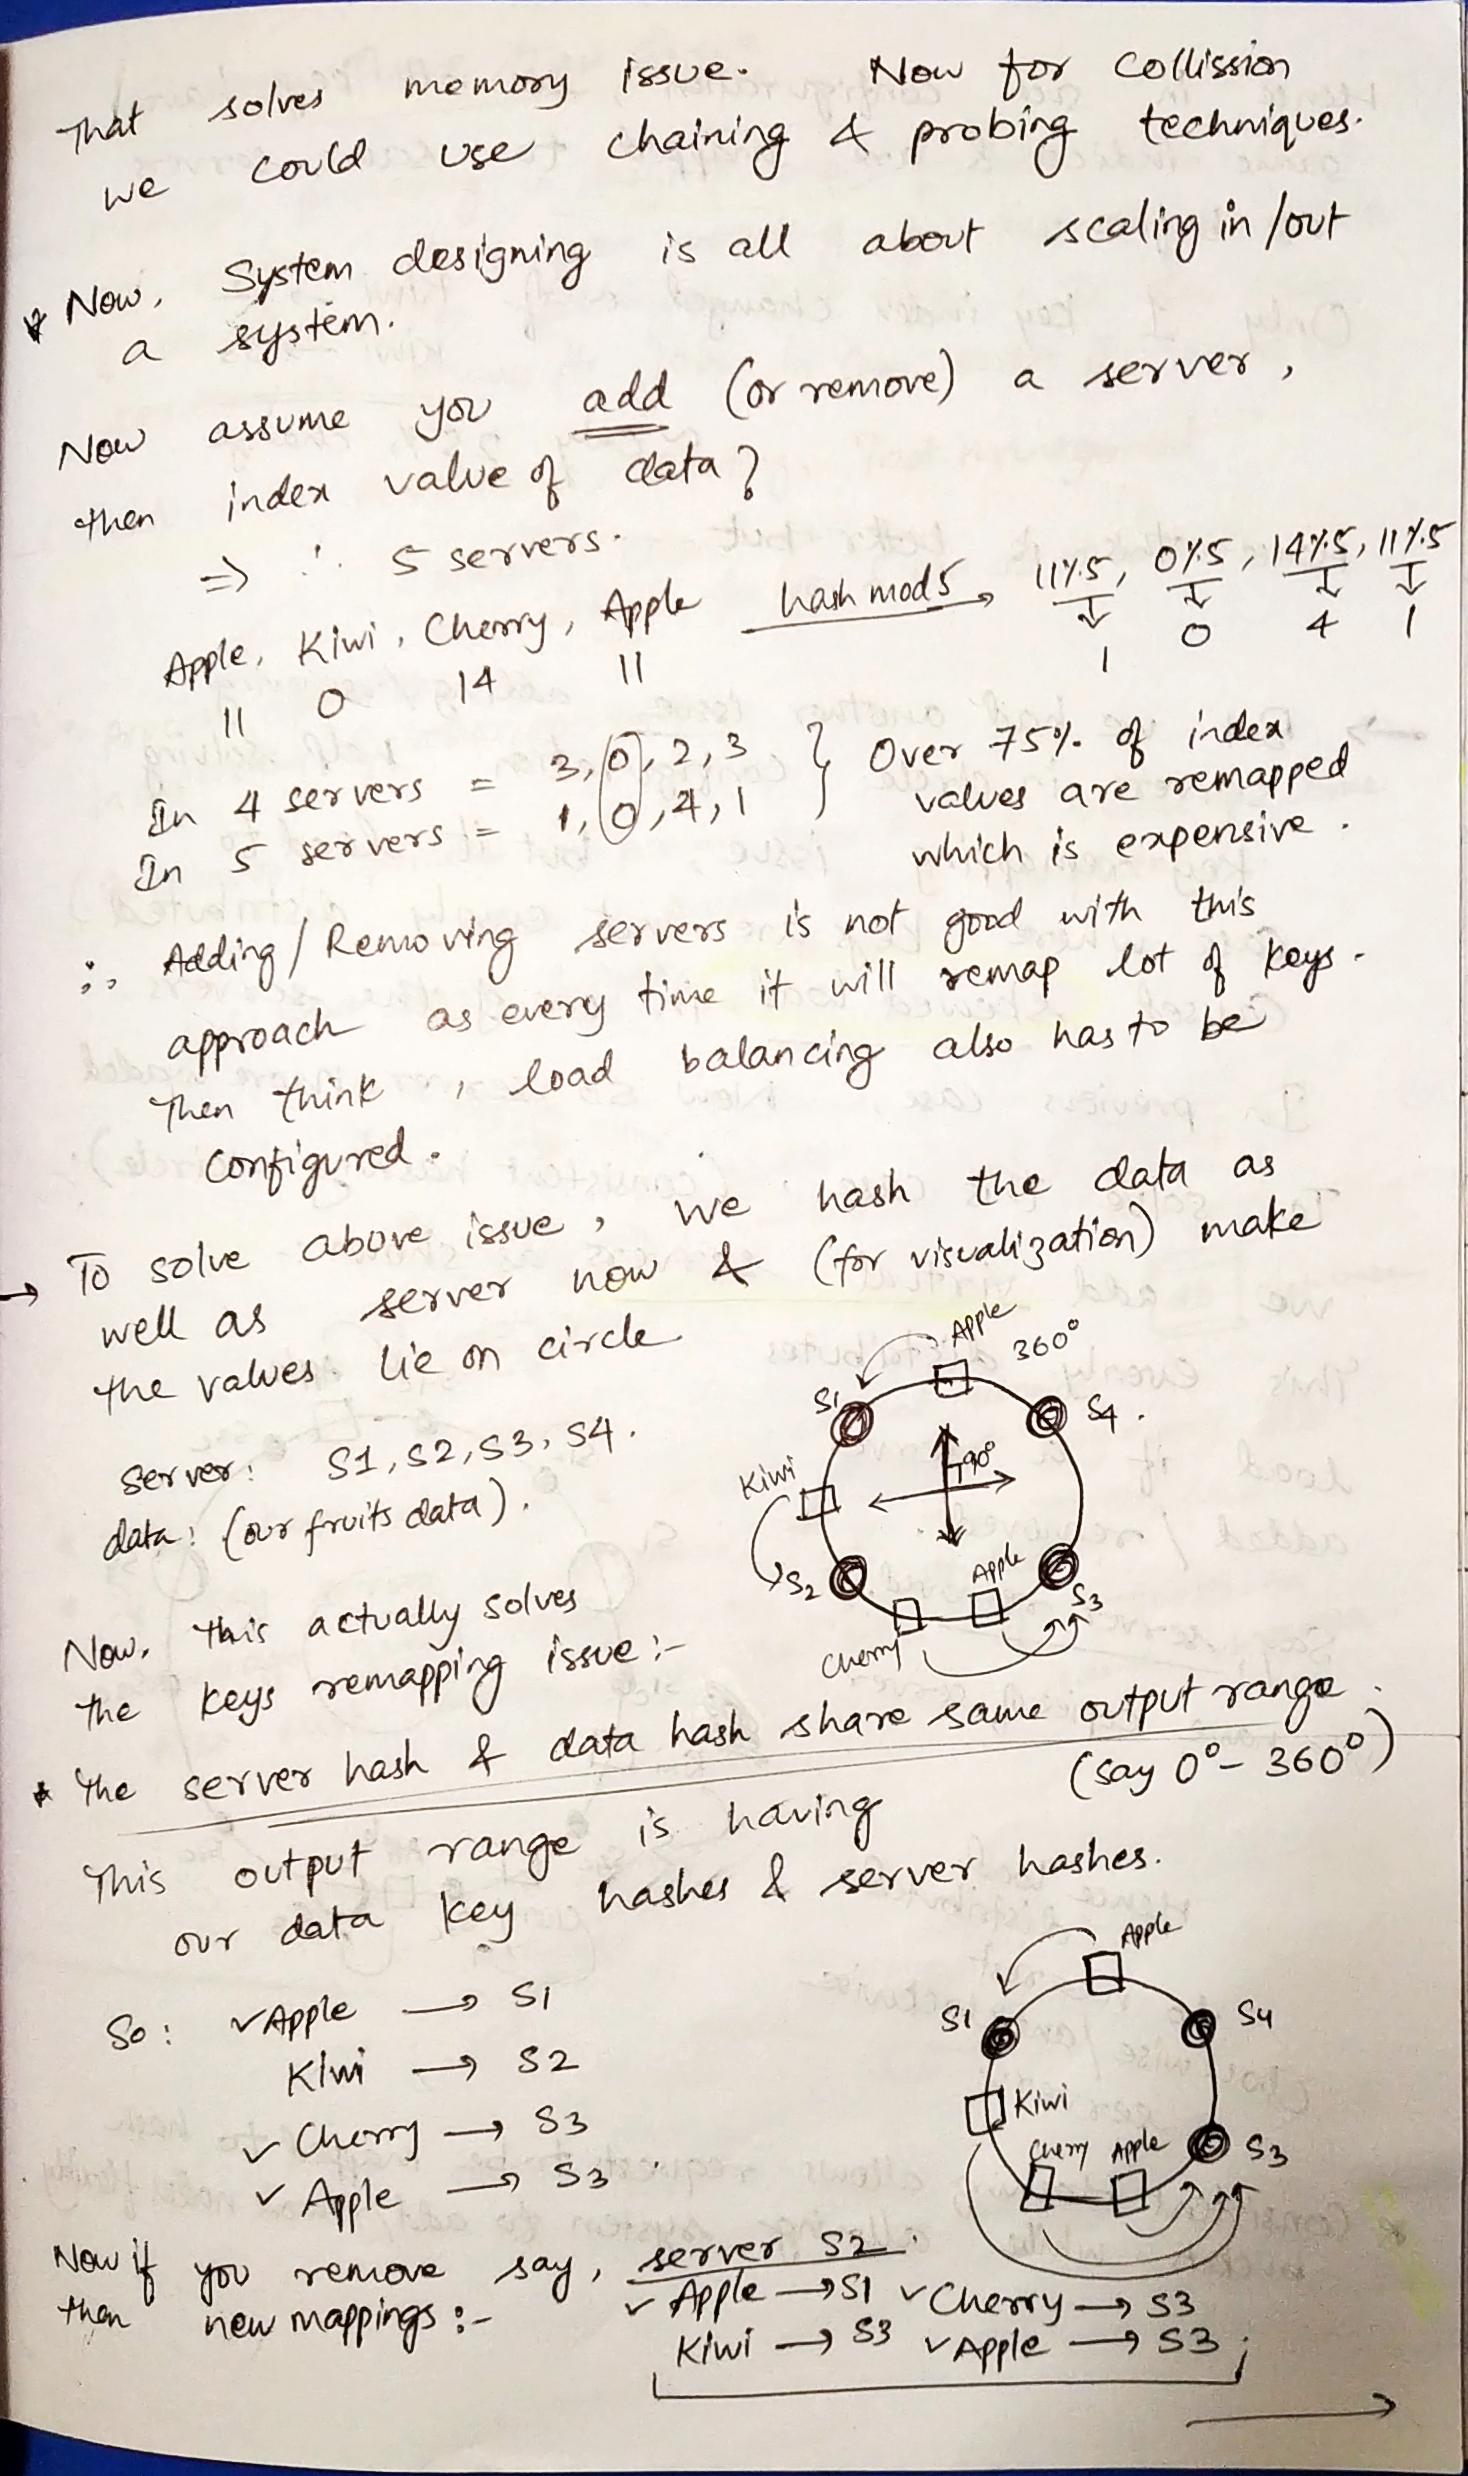 That solves memory issue. Now for Collission
we could use chaining & probing techniques.
* Now, System designing is all about scaling in/out
a system.
Now assume you add (or remove) a server,
then index value of data?
=> ∴ 5 servers.
Apple, Kiwi, Cherry, Apple hash mod 5 → 11%5, 0%5, 14%5, 11%5
11 0 14 11 1 0 4 1
In 4 servers = 3, 0, 2, 3 } Over 75% of index
In 5 servers = 1, 0, 4, 1 values are remapped
which is expensive.
∴ Adding/Removing servers is not good with this
approach as every time it will remap lot of keys.
Then think, load balancing also has to be
configured.
→ To solve above issue, we hash the data as
well as server now & (for visualization) make
the values lie on circle
Apple
360°
S1
S4.
server: S1, S2, S3, S4.
Kiwi
90°
data: (our fruits data).
S2
Apple
S3
Cherry
Now, this actually solves
the keys remapping issue :-
* The server hash & data hash share same output range.
(say 0° - 360°)
This output range is having
our data key hashes & server hashes.
Apple
So: ✓ Apple → S1
S1
S4
Kiwi → S2
Kiwi
✓ Cherry → S3
Cherry Apple S3
✓ Apple → S3
Now if you remove say, server S2.
then new mappings :-
✓ Apple → S1 ✓ Cherry → S3
Kiwi → S3 ✓ Apple → S3;
→